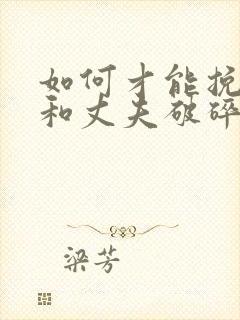 如何才能挽
和丈夫破碎
梁芳